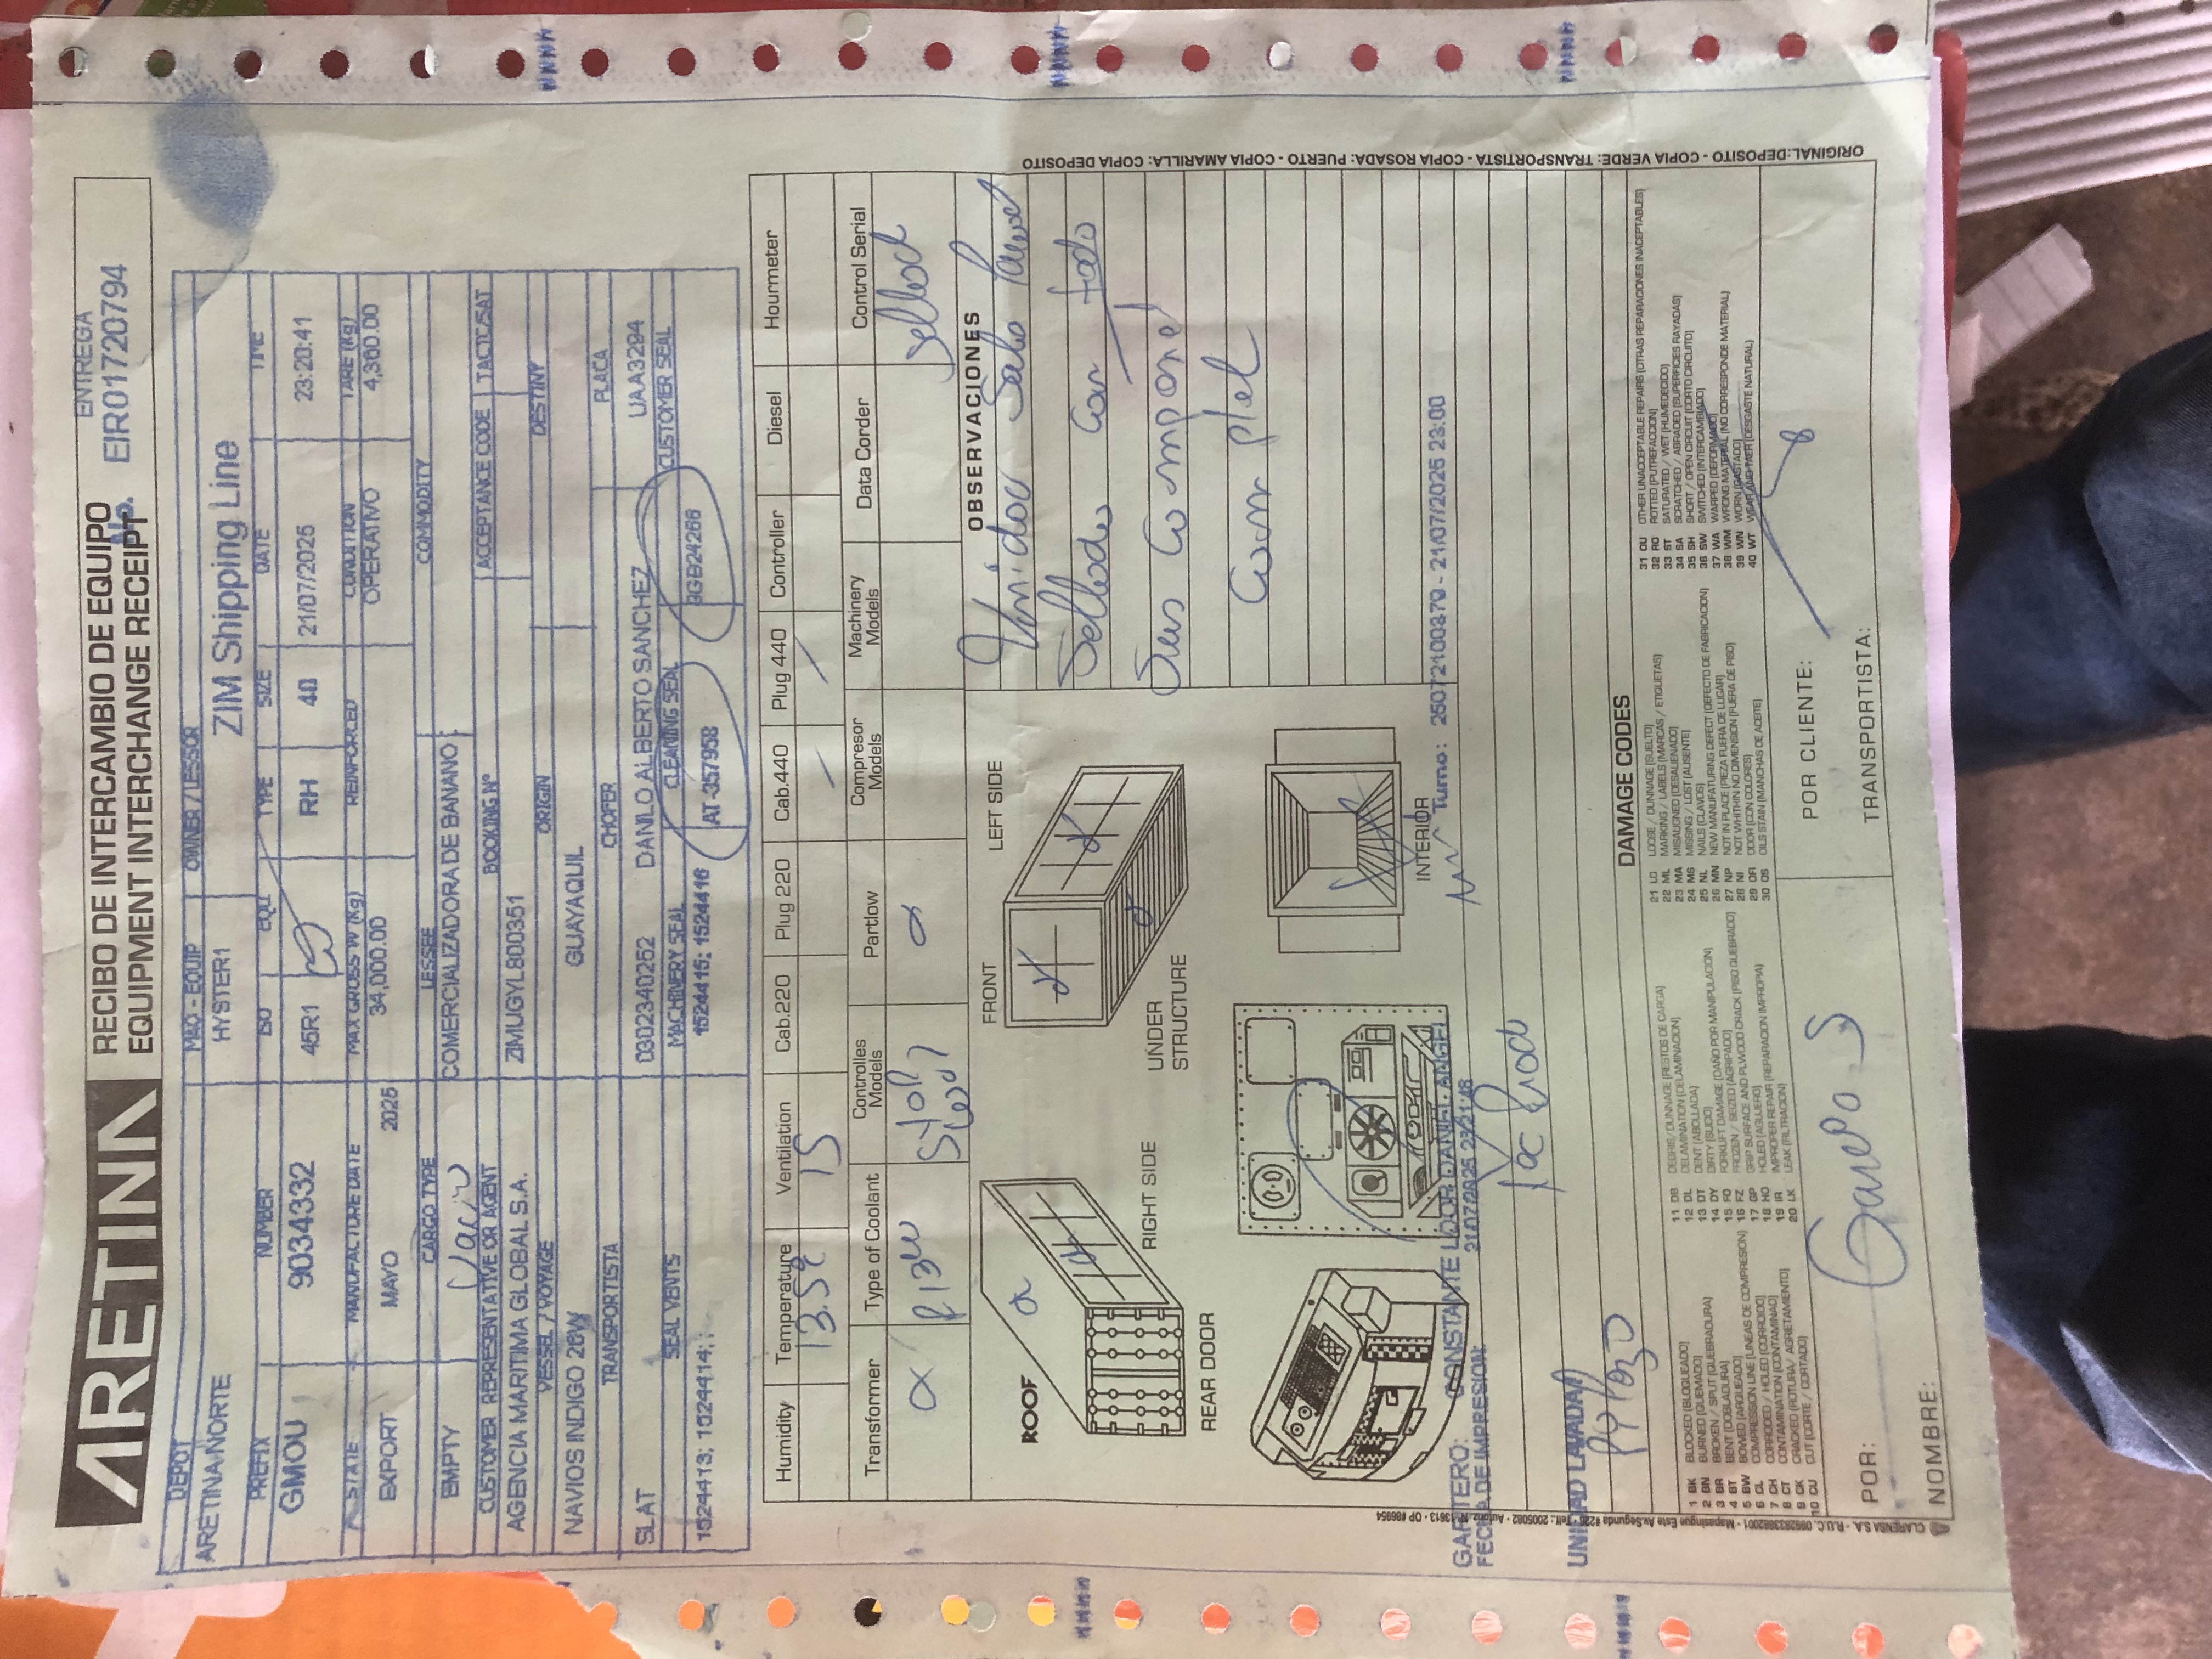 ARETINA
RECIBO DE INTERCAMBIO DE EQUIPO
EQUIPMENT INTERCHANGE RECEIPT
ENTREGA
No. EIR01720794
DEPOT MAQ - EQUIP OWNER / LESSOR
ARETINA NORTE HYSTER1 ZIM Shipping Line
PREFIX NUMBER ISO EQU. TYPE SIZE DATE TIME
GMOU 9034332 45R1 RH 40 21/07/2025 23:20:41
STATE MANUFACTURE DATE MAX GROSS W (Kg) REINFORCED CONDITION TARE (Kg)
EXPORT MAYO 2025 34,000.00 OPERATIVO 4,360.00
CARGO TYPE LESSEE COMMODITY
EMPTY Vacio COMERCIALIZADORA DE BANANO
CUSTOMER REPRESENTATIVE OR AGENT BOOKING Nº ACCEPTANCE CODE TACTC/SAT
AGENCIA MARITIMA GLOBAL S.A. ZIMUGYL800351
VESSEL / VOYAGE ORIGIN DESTINY
NAVIOS INDIGO 26W GUAYAQUIL
TRANSPORTISTA CHOFER PLACA
SLAT 0302340252 DANILO ALBERTO SANCHEZ UAA3294
SEAL VENTS MACHINERY SEAL CLEANING SEAL CUSTOMER SEAL
1524413; 1524414; ; 1524415; 1524416 AT-357958 3GB24266
Humidity Temperature Ventilation Cab.220 Plug 220 Cab.440 Plug 440 Controller Diesel Hourmeter
13.5º 15
Transformer Type of Coolant Controlles Models Partlow Compresor Models Machinery Models Data Corder Control Serial
OBSERVACIONES
ROOF
RIGHT SIDE
REAR DOOR
FRONT
LEFT SIDE
UNDER STRUCTURE
Sellado con todo
Sus
INTERIOR
GARITERO: CONSTANTE LOOR DANIEL ANGEL Turno: 25072100379 - 21/07/2025 23:00
FECHA DE IMPRESION: 21/07/2025 23:21:48
UNIDAD LAVADA/
DAMAGE CODES
1 BK BLOCKED (BLOQUEADO)
2 BN BURNED (QUEMADO)
3 BR BROKEN / SPLIT (QUEBRADURA)
4 BT BENT (DOBLADURA)
5 BW BOWED (ARQUEADO)
6 CL COMPRESSION LINE (LINEAS DE COMPRESION)
7 CH CORRODED / HOLED (CORROIDO)
8 CT CONTAMINATION (CONTAMINAO)
9 CK CRACKED (ROTURA/ AGRIETAMIENTO)
10 CU CUT (CORTE / CORTADO)
11 DB DEBRIS/DUNNAGE (RESTOS DE CARGA)
12 DL DELAMINATION (DELAMINACION)
13 DT DENT (ABOLLADA)
14 DY DIRTY (SUCIO)
15 FO FORKLIFT DAMAGE (DAÑO POR MANIPULACION)
16 FZ FROZEN / SEIZED (AGRIPADO)
17 GP GRIP SURFACE AND PLWOOD CRACK (PISO QUEBRADO)
18 HO HOLED (AGUJERO)
19 IR IMPROPER REPAIR (REPARACION IMPROPIA)
20 LK LEAK (FILTRACION)
21 LO LOOSE / DUNNAGE (SUELTO)
22 ML MARKING / LABELS (MARCAS / ETIQUETAS)
23 MA MISAUGNED (DESALIENADO)
24 MS MISSING / LOST (AUSENTE)
25 NL NAILS (CLAVOS)
26 MN NEW MANUFATURING DEFECT (DEFECTO DE FABRICACION)
27 NP NOT IN PLACE (PIEZA FUERA DE LUGAR)
28 NI NOT WHITHIN NO DIMENSION (FUERA DE PISO)
29 OFI ODOR (CON COLORES)
30 OS OILS STAIN (MANCHAS DE ACEITE)
31 OU OTHER UNACCEPTABLE REPAIRS (OTRAS REPARACIONES INACEPTABLES)
32 RO ROTTED (PUTREFACCION)
33 ST SATURATED / WET (HUMEDECIDO)
34 SA SCRATCHED / ABRADED (SUPERFICIES RAYADAS)
35 SH SHORT / OPEN CIRCUIT (CORTO CIRCUITO)
36 SW SWITCHED (INTERCAMBIADO)
37 WA WARPED (DEFORMADO)
38 WM WRONG MATERIAL (NO CORRESPONDE MATERIAL)
39 WN WORN (GASTADO)
40 WT WEAR AND TAER (DESGASTE NATURAL)
POR:
NOMBRE:
POR CLIENTE:
TRANSPORTISTA:
ORIGINAL:DEPOSITO - COPIA VERDE: TRANSPORTISTA - COPIA ROSADA: PUERTO - COPIA AMARILLA: COPIA DEPOSITO